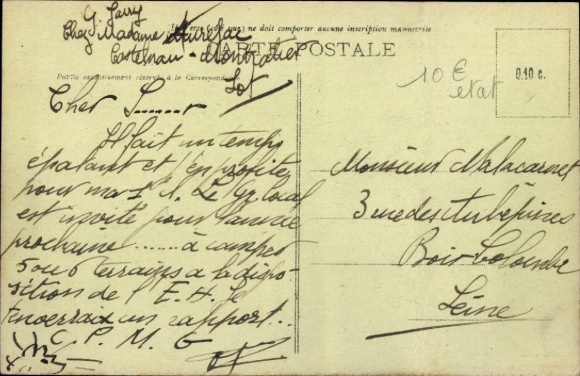 G. Jarry
Chez Madame
Castelnau - Montratier
Lot
ne doit comporter aucune inscription manuscrite
CARTE POSTALE
Partie exclusivement réservée à la Correspondance
10 €
etat
0.10 c.
Cher S......r
Il fait un temps
épatant et j'en profite
pour ma
est invité pour l'année
prochaine ........ à camper
5 ou 6 terrains à la dispo-
sition de l'E.
un rapport...
C. P. M. G
Monsieur Malacarnet
3 rue des Aubépines
Bois Colombe
Seine